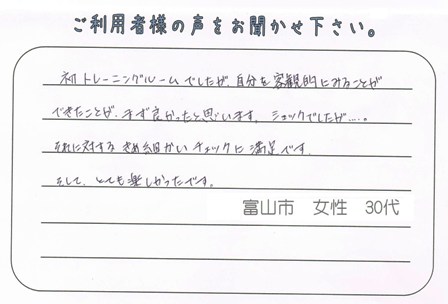 ご利用者様の声をお聞かせ下さい。
初トレーニングルームでしたが、自分を客観的にみることが
できたことが、まず良かったと思います。ショックでしたが……。
それに対するきめ細かいチェックに満足です。
そして、とても楽しかったです。
富山市 女性 30代